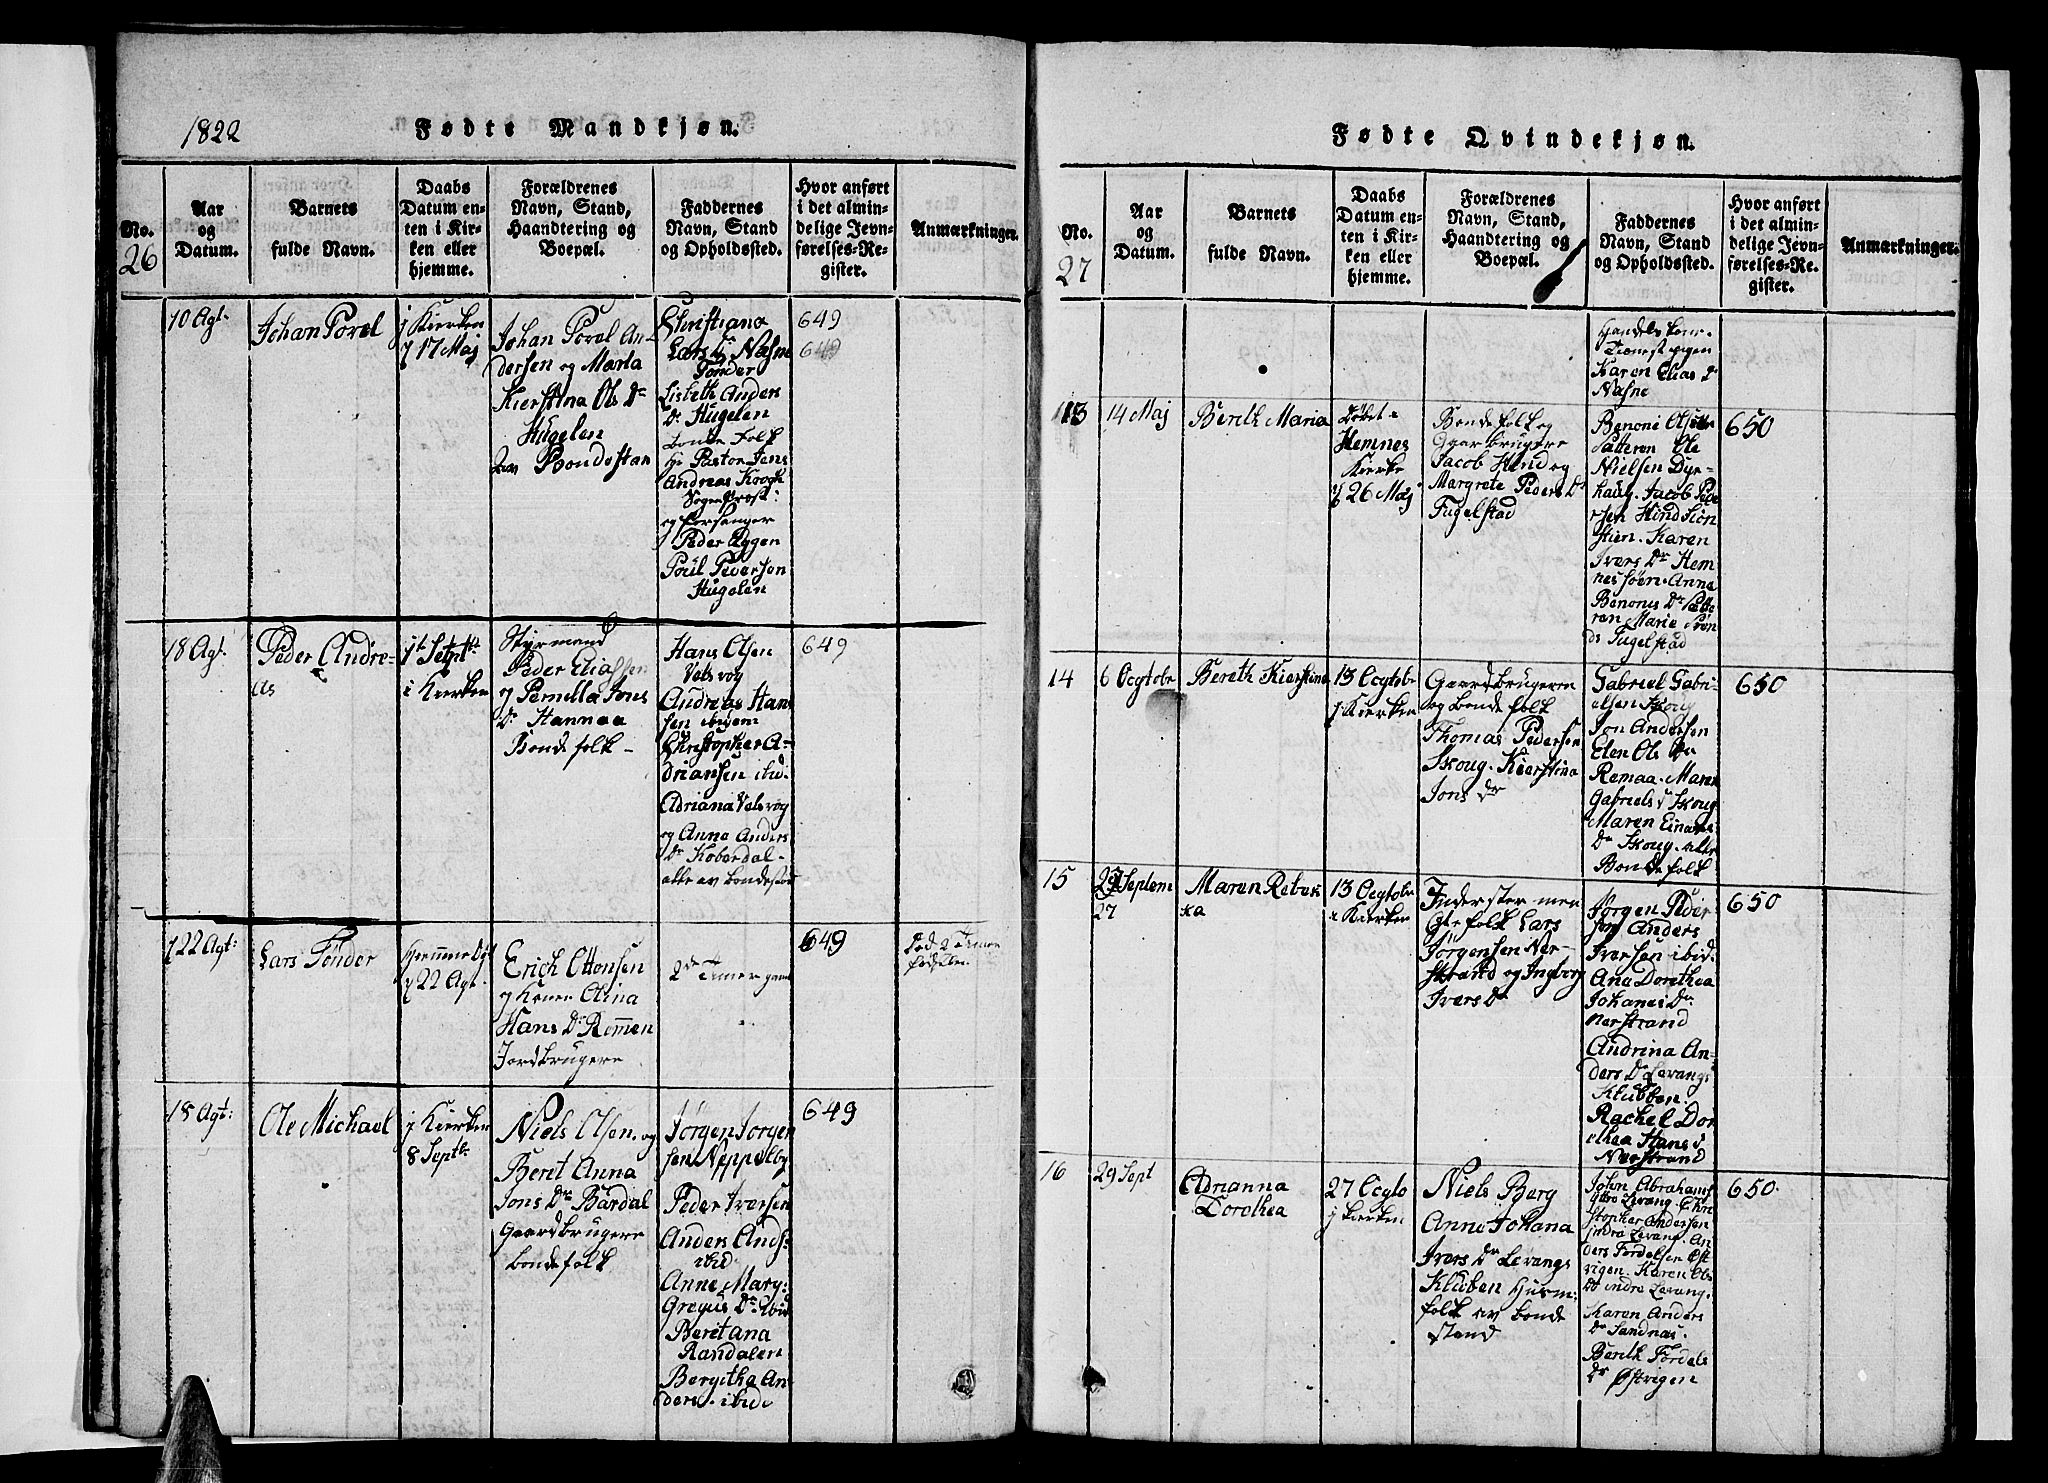 1822
Fødte Mandkjøn.
No.
26
Aar
og
Datum.
Barnets
fulde Navn.
Daabs
Datum en-
ten i Kir-
ken eller
hjemme.
Forældrenes
Navn, Stand,
Haandtering og
Boepæl.
Faddernes
Navn, Stand
og Opholdssted.
Hvor anført
i det almin-
delige Jevn-
førelses-Re-
gister.
Anmærkninger.
10 Agt.
Johan Porel
j Kierken
17 Maj
Johan Porel An-
dersen og Marta
Kierstina Ols Dr
Hugelen
Bondestan
Christiana
Lars Dr Næsne
Tonder
Lisbeth Anders
Dr Hugelen
bonde folk
Hr Pastor Jens
Andreas Krogh
Sogenprest
og forsanger
Peder Aggen
Poul Pedersen
Hugelen
649
649
18 Agt.
Peder Andre-
as
1te Septbr
i Kierken
Styrmand
Peder Eliassen
og Pernilla Jons
Dr Hannaa
Bonde folk -
Hans Olsen
Vals vog
Andreas Han
sen ibidem
Christopher A-
driansen ibid.
Adriana Vals vog
og Anna Anders
Dr Koberdal -
alle av bondestad
649
22 Agt:
Lars Tønder
Hiemme Døbt
22 Agt.
Erich Ottonsen
og Konen Olina
Hans Dr Rømmen
Jordbrugere
649
18 Agt:
Ole Michael
j Kierken
8 Septbr
Niels Olsen. og
Berit Anna
Jons Dr Bardal
Gaardbrugere
bondefolk
Jørgen Jørgen
sen Neppelby
Peder Iversen
Anders Ands:
ibid
Anne Mary:
Gregus Dr ibid
Beritana
Randalen
Bergitha An-
ders. ibid
649
Fødte Qvindekjøn.
No.
27
Aar
og
Datum.
Barnets
fulde Navn.
Daabs
Datum en-
ten i Kir-
ken eller
hjemme.
Forældrenes
Navn, Stand,
Haandtering og
Boepæl.
Faddernes
Navn, Stand
og Opholdssted.
Hvor anført
i det almin-
delige Jevn-
førelses-Re-
gister.
Anmærkninger.
Handels
Tienest pigen
Karen Elias Dr
Næsne
13
14 Maj
Berith Maria
Døbt i
Hemnes
Kierke
26 Maj
Bondefolk og
Gaarbrugere
Jacob Hind og
Margrete Peders Dr
Fugelstad
Benoni Olsen
Sætteren Ole
Nielsen Dyr-
haug. Jacob Pede
rsen Hind Sion
stien. Karen
Ivers Dr Hem
nessøen. Anna
Benonis Dr Sætte
ren Marie
Fugelstad
650
14
6 Ocgtobr
Bereth Kierstina
13 Ocgtobr
j Kierken
Gaardbrugeren
og bonde folk
Thomas Pedersen
Skoug. Kierstina
Jons Dr
Gabriel Gabri-
elsen Skoug
Jon Andersen
Elen Ols Dr
Remaa. Maren
Gabriels d Skoug
Maren Einars
Dr Skoug. alle
Bonde folk
650
15
27 Septem
27
Maren Rebek
ka
13 Ocgtobr
i Kierken
Inderster men
Gte folk Lars
Jörgensen Ner-
strand og Ingborg
Ivers Dr
Jørgen Peder
sen Anders
Iversen ibid.
Ana Dorethea
Johanes Dr
Nerstrand
Andrina An-
ders Dr Levangs
Klubben.
Rachel Dor
ethea Hans d
Nerstrand
650
16
29 Sept
Adrianna
Dorothea
27 Ocgto
j Kierken
Niels Berg
Anne Johana
Ivers Dr Levangs
Kluben Husm:
folk av bonde
stand
John Abrahams
Ytre Levang. Chri
stopher Andersen
indre Levang. An
ders Fordelsen Øst
vigen. Karen Ols
Dr indre Levang.
Karen Anders
Dr Sandnæs.
Berith Fordels
Dr Østvigen
650.